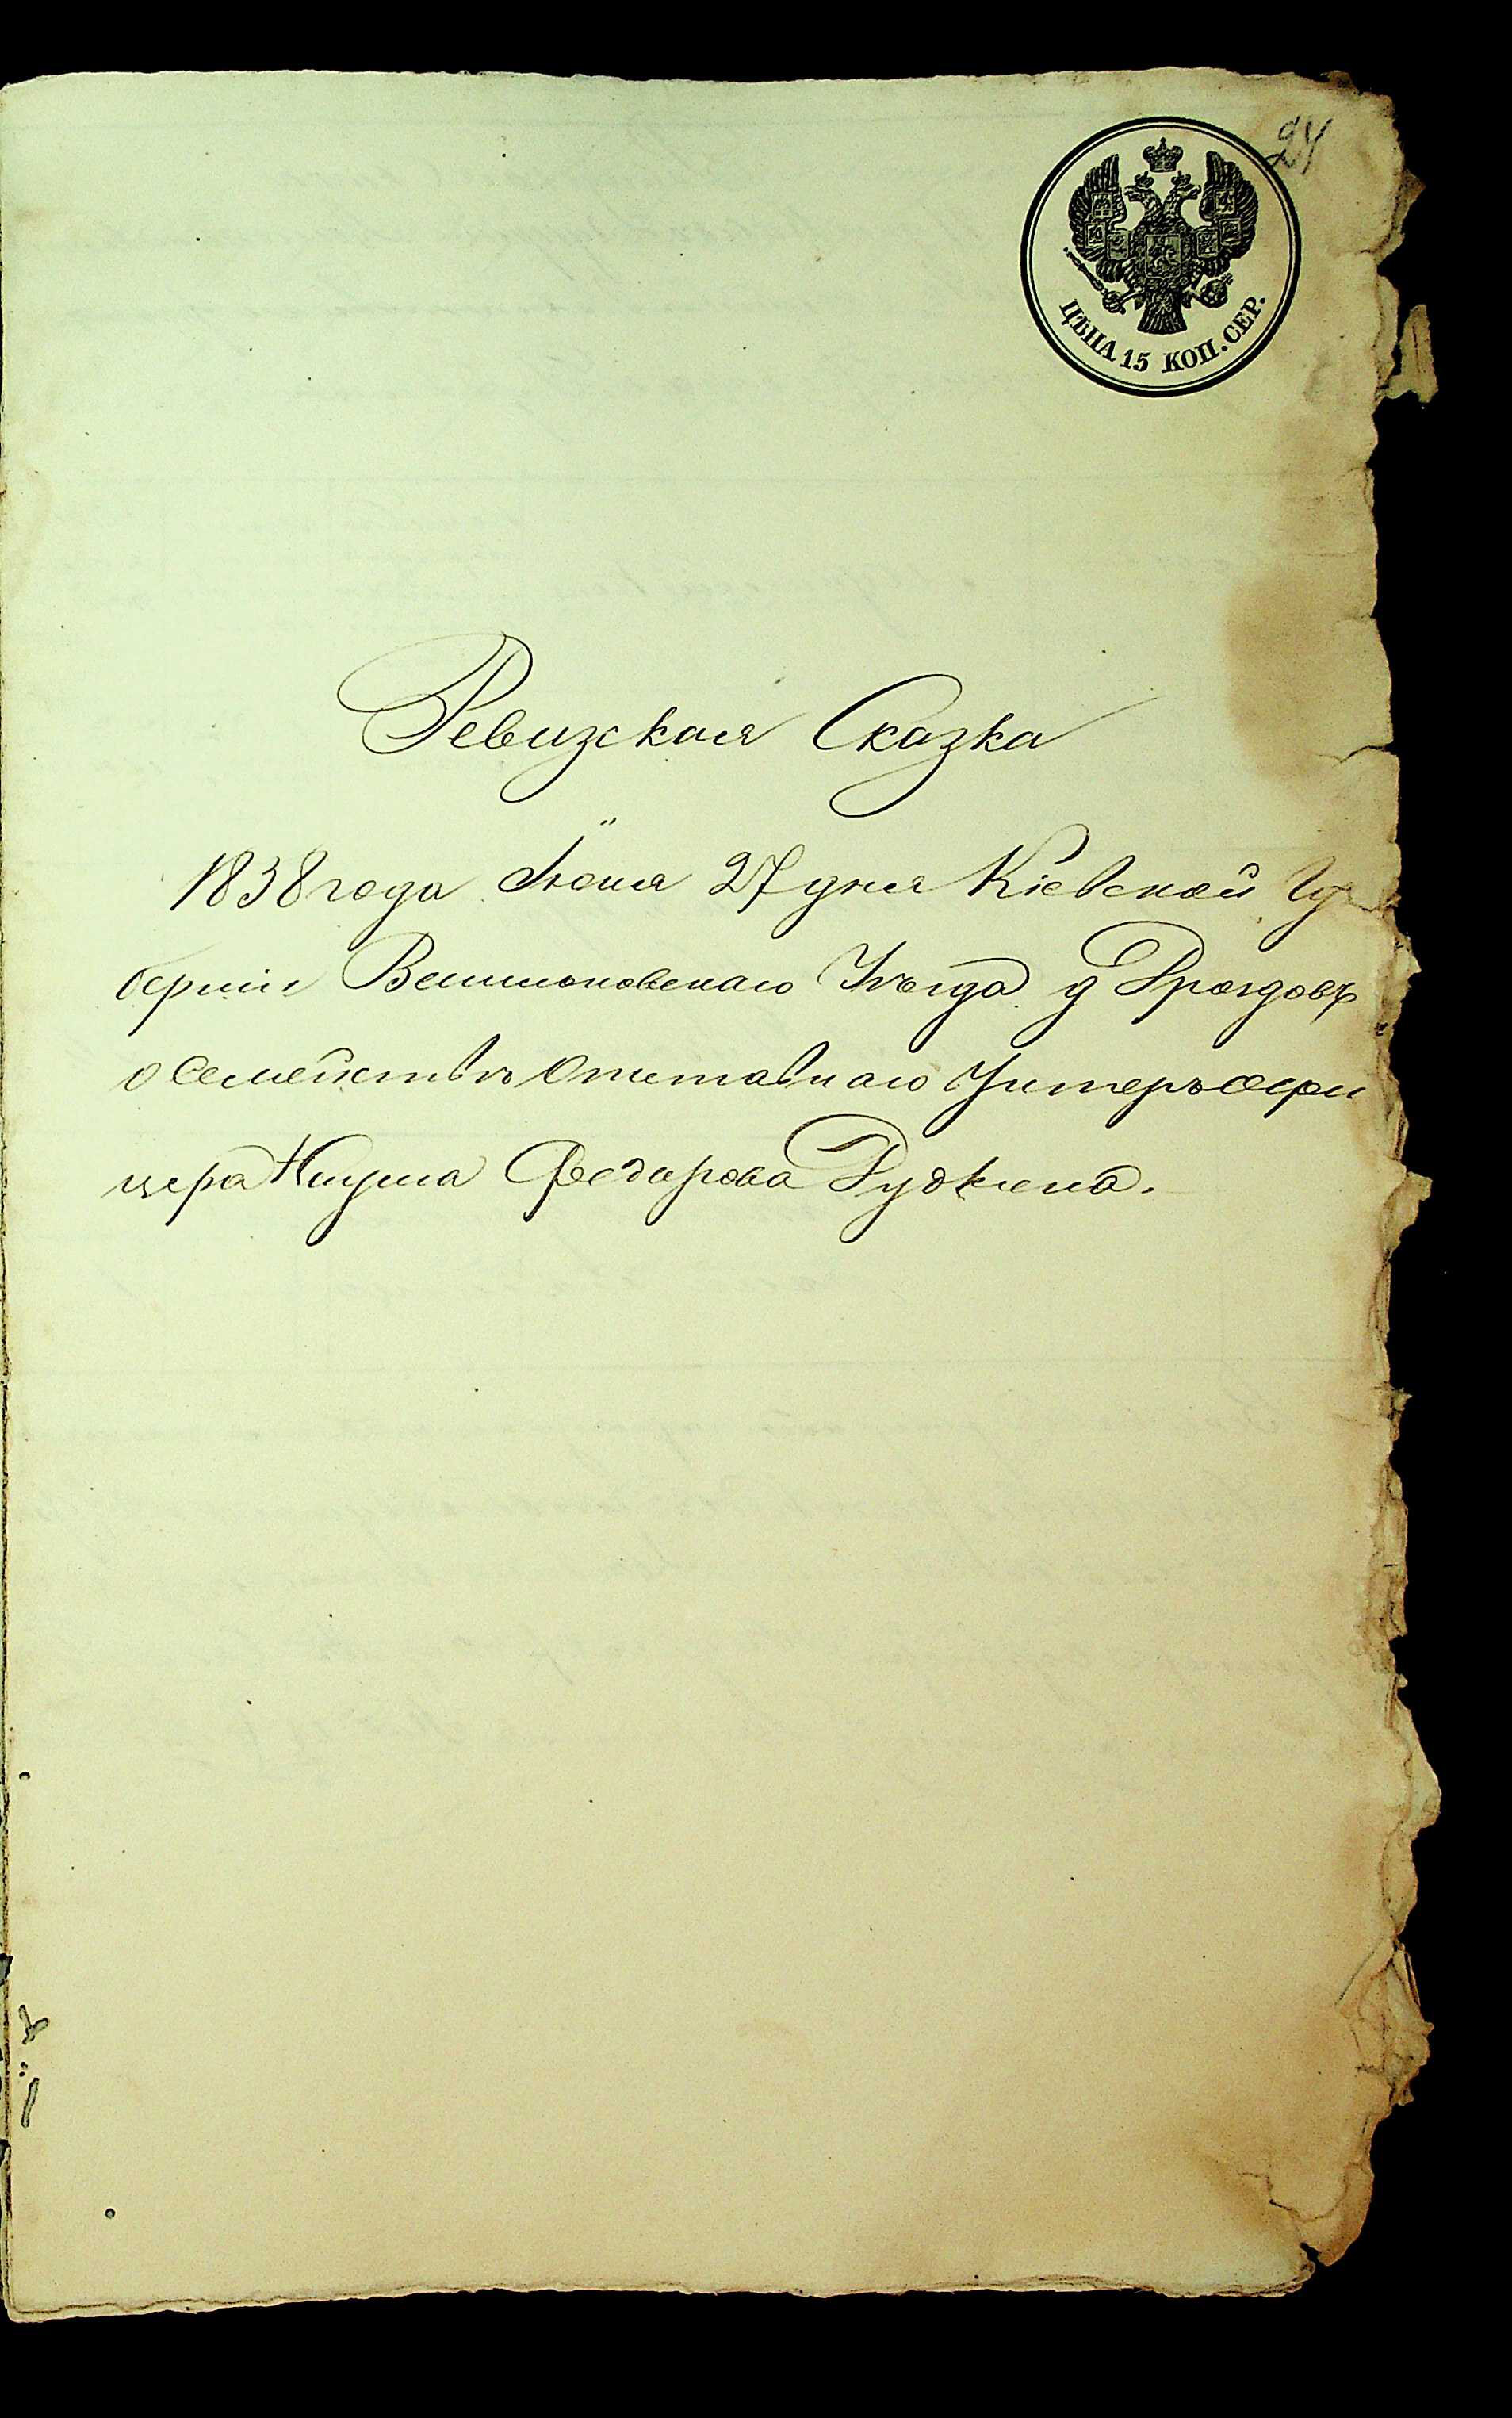 24
ЦѢНА 15 КОП. СЕР.
Ревизская Сказка
1858 года Іюня 27 дня Кіевской Гу
берніи Васильковскаго Уѣзда д Дроздовъ
о Семействѣ Отставнаго Унтеръ Офи
цера Наума Федорова Гудкова.